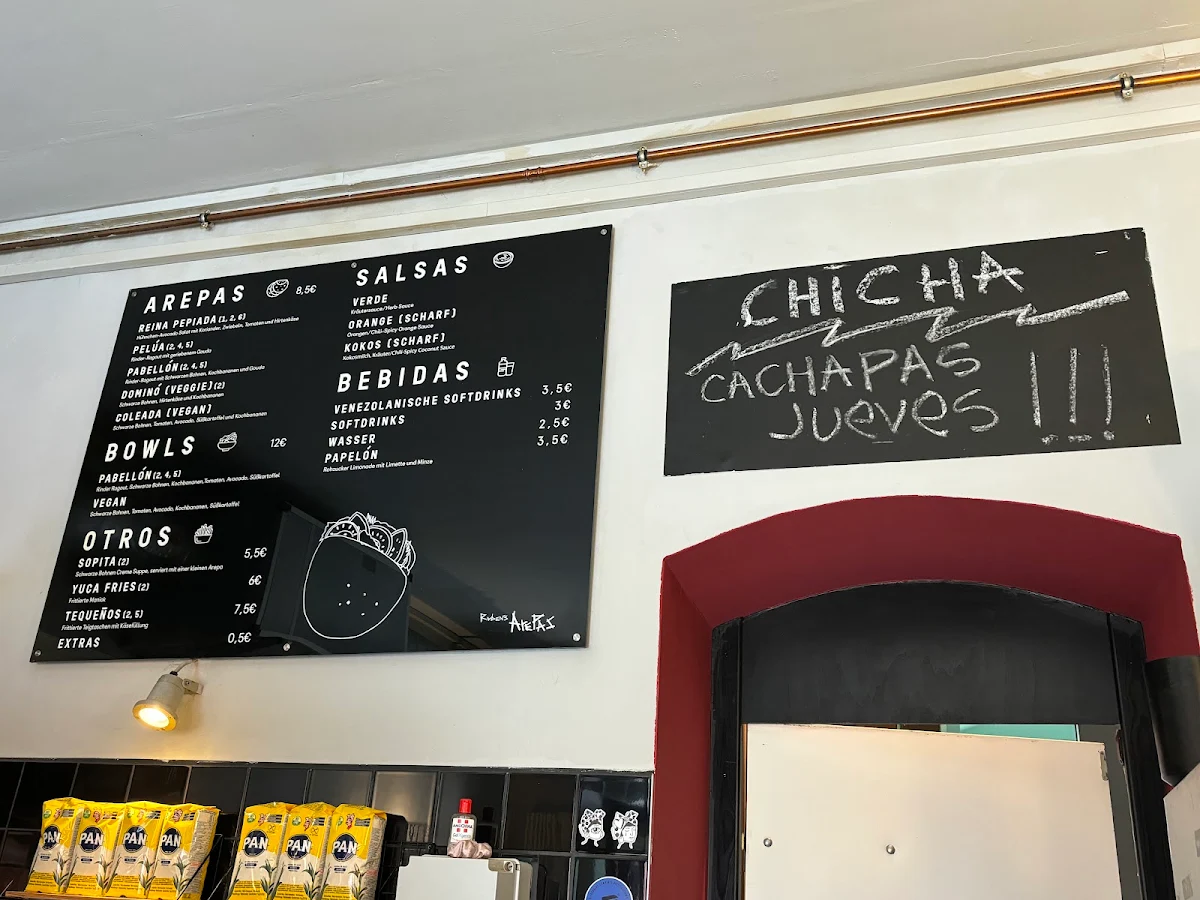 AREPAS 8,5€
REINA PEPIADA (1, 2, 6)
Hühnchen-Avocado Salat mit Koriander, Zwiebeln, Tomaten und Hirtenkäse
PELÚA (2, 4, 5)
Rinder-Ragout mit geriebenem Gouda
PABELLÓN (2, 4, 5)
Rinder-Ragout mit Schwarzen Bohnen, Kochbananen und Gouda
DOMINÓ (VEGGIE) (2)
Schwarze Bohnen, Hirtenkäse und Kochbananen
COLEADA (VEGAN)
Schwarze Bohnen, Tomaten, Avocado, Süßkartoffel und Kochbananen
BOWLS 12€
PABELLÓN (2, 4, 5)
Rinder Ragout, Schwarze Bohnen, Kochbananen, Tomaten, Avocado, Süßkartoffel
VEGAN
Schwarze Bohnen, Tomaten, Avocado, Kochbananen, Süßkartoffel
OTROS
SOPITA (2) 5,5€
Schwarze Bohnen Creme Suppe, serviert mit einer kleinen Arepa
YUCA FRIES (2) 6€
Frittierte Maniok
TEQUEÑOS (2, 5) 7,5€
Frittierte Teigtaschen mit Käsefüllung
EXTRAS 0,5€
SALSAS
VERDE
Kräutersauce/Herb Sauce
ORANGE (SCHARF)
Orangen/Chili-Spicy Orange Sauce
KOKOS (SCHARF)
Kokosmilch, Kräuter/Chili-Spicy Coconut Sauce
BEBIDAS
VENEZOLANISCHE SOFTDRINKS 3,5€
SOFTDRINKS 3€
WASSER 2,5€
PAPELÓN 3,5€
Rohzucker Limonade mit Limette und Minze
AREPAS
CHICHA
CACHAPAS
JUEVES !!!
PAN PAN PAN PAN PAN PAN PAN